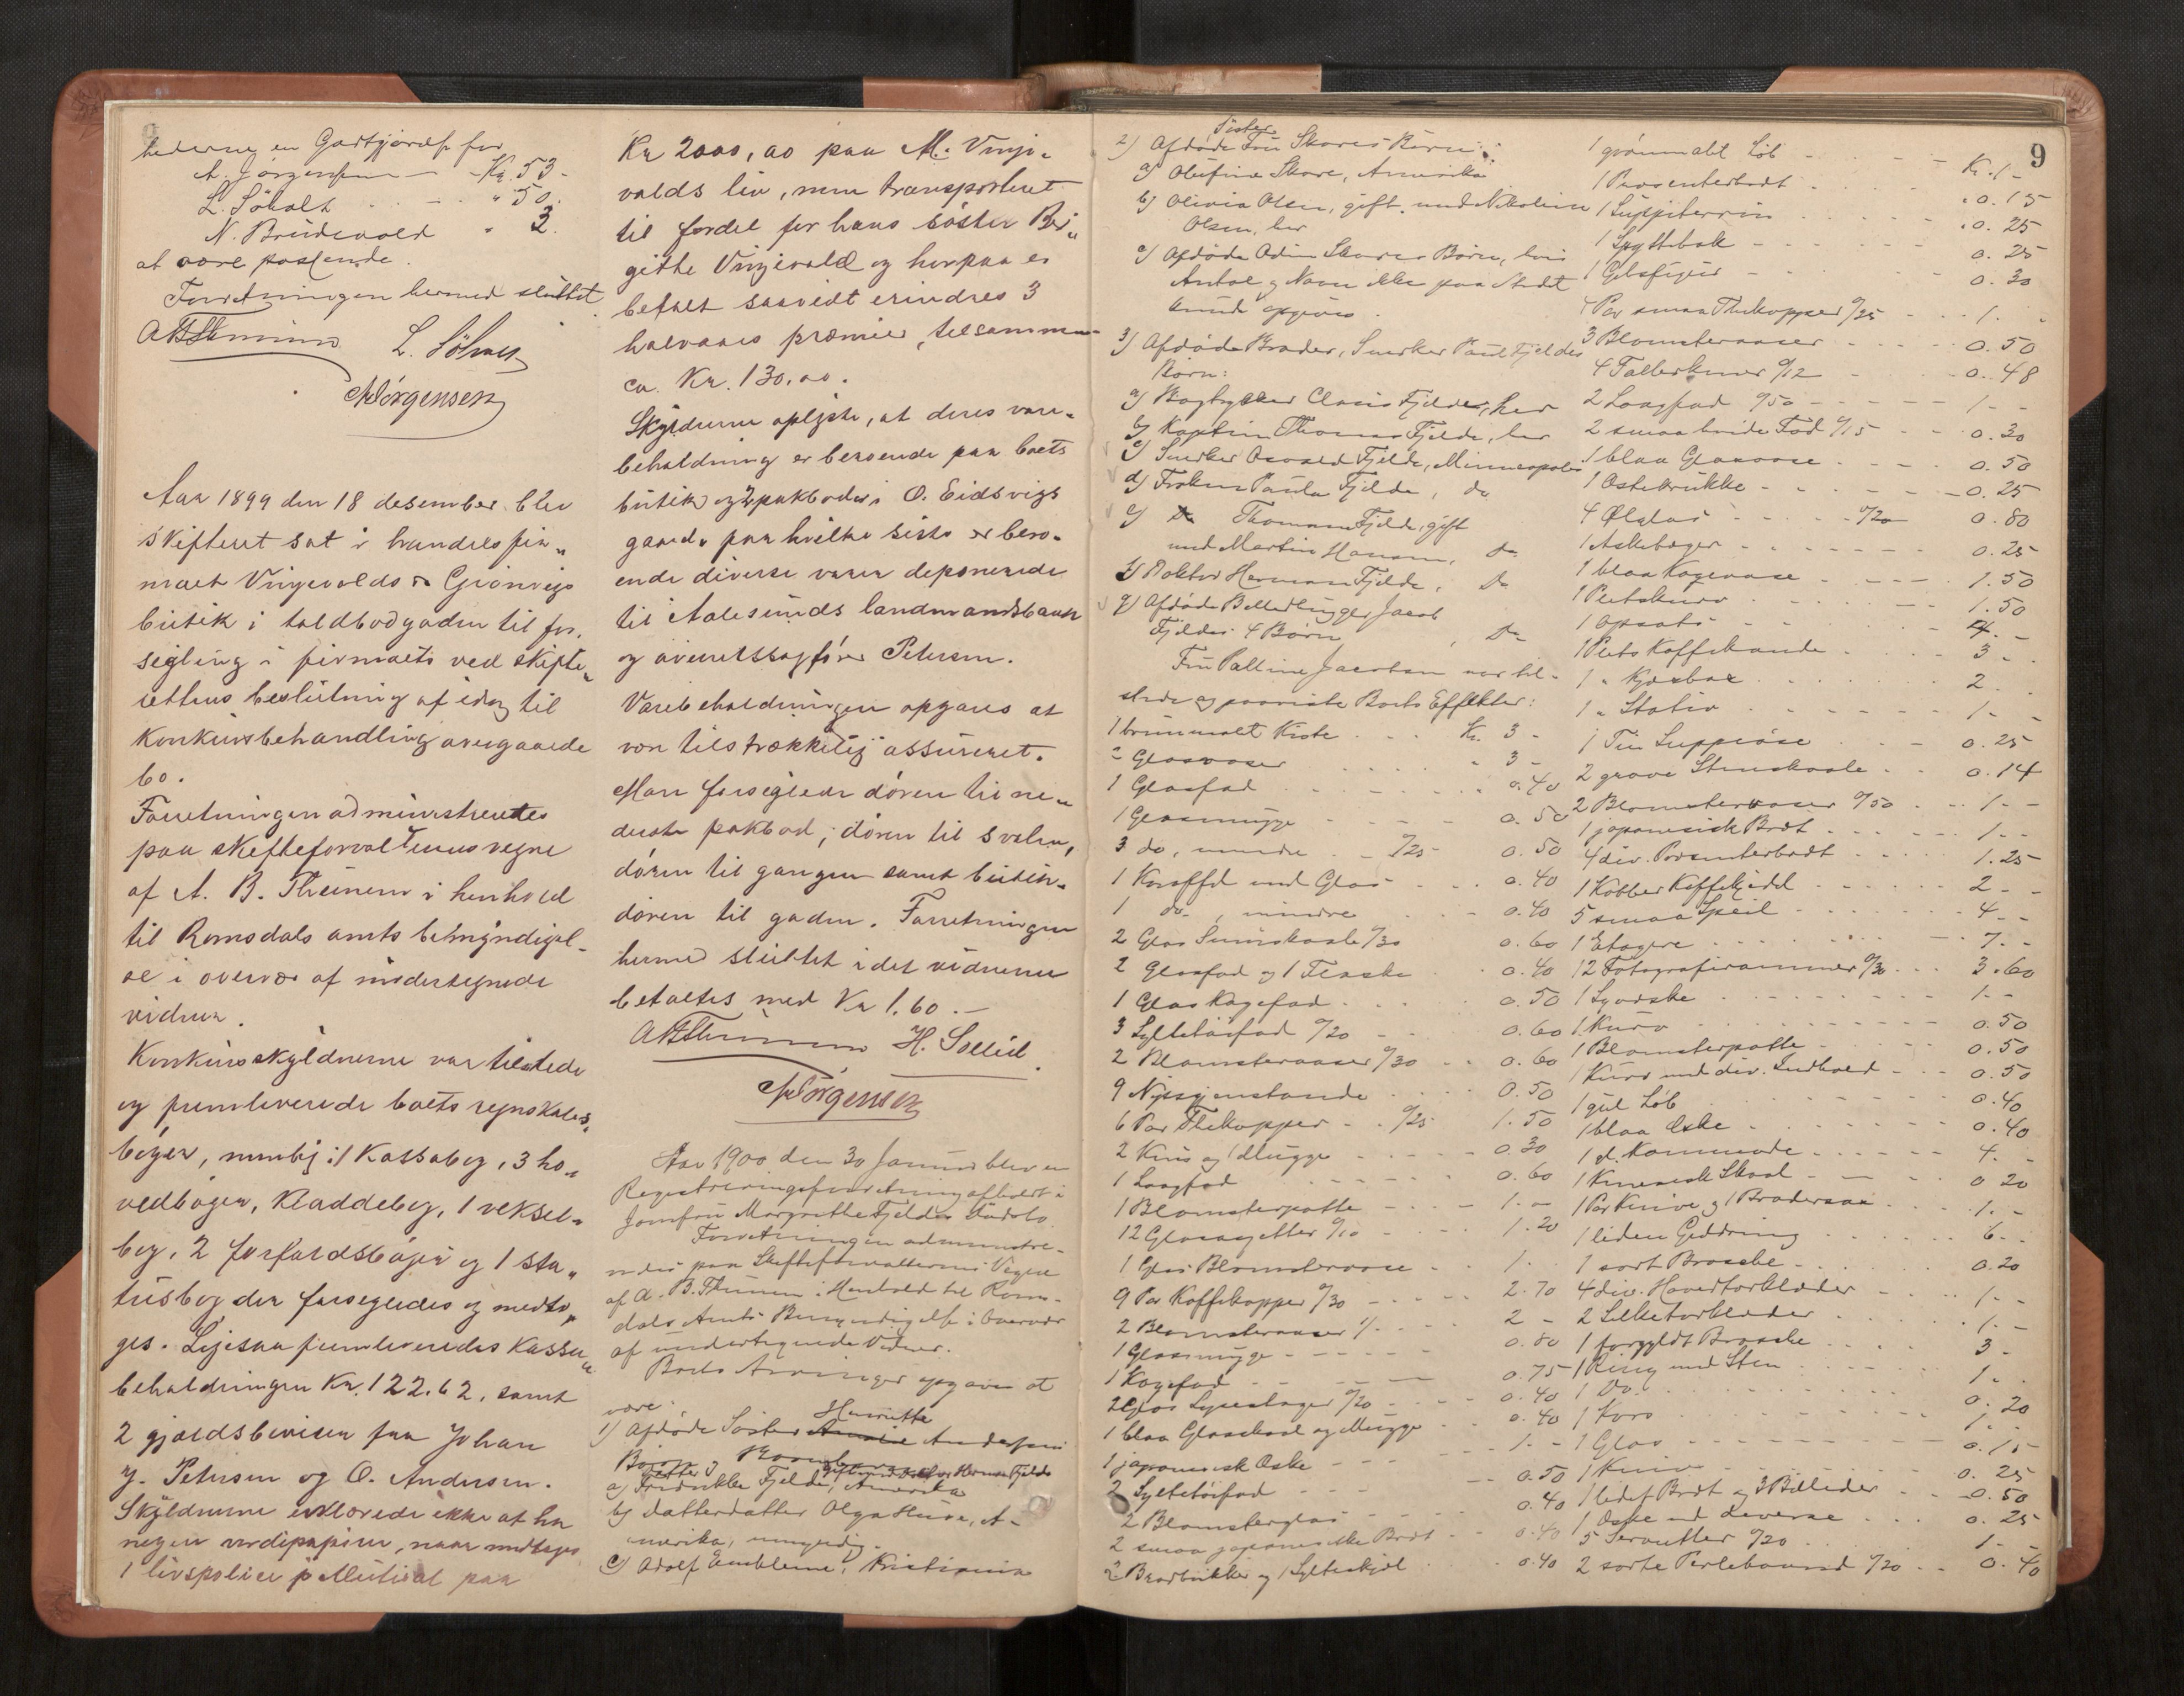 hederne en Godtgjørelse for
A. Jørgensen — Kr. 53 -
L. Søholt . . - . " 50.
N. Brudevold " 3.
at være passende.
Forretningen hermed sluttet.
ABTheninn L. Søholt
AJørgensen
Aar 1899 den 18 desember blev
skifteret sat i handelsfir„
maet Vingevolds & Grønvigs
butik i toldbodgaden til for„
segling i firmaets ved skifte„
rettens beslutning af idag til
Konkursbehandling overgaaede
bo.
Forretningen administreredes
paa skifteforvalterens vegne
af A. B. Theinem i henhold
til Romsdals amts bemyndigel„
se i overvær af undertegnede
vidner.
Konkursskyldnerne var tilstede
og fremleverede boets regnskabs„
bøger, nemlig: 1 Kassabog, 3 ho„
vedbøger, Kladdebog, 1 veksel„
bog, 2 forfaldsbøger og 1 sta„
tusbog der forsegledes og medto„
ges. Ligesaa fremleveredes Kassa„
beholdningen Kr. 122.62, samt
2 gjældsbeviser fra Johan
J. Petersen og O. Andersen.
Skyldnerne erklærede ikke at ha
nogen verdipapirer, naar undtages
1 livspolice i Mutual paa
Kr 2000,00 paa M. Vinje„
volds liv, men transporteret
til fordel for hans søster Bir„
githe Vingevold og herpaa er
betalt saavidt erindres 3
halvaars præmier, tilsammen
ca. Kr. 130,00.
Skyldnerne oplyste, at deres vare„
beholdning er beroende paa boets
butik og 2 pakboder i O. Eidsvigs
gaard, paa hvilke siste er bero„
ende diverse varer deponerede
til Aalesunds landmandsbank
og overretssagfører Petersen.
Varebeholdningen opgaves at
være tilstrækkelig assureret.
Man forseglede døren til ne„
derste pakbod, døren til svalen,
døren til gangen samt butik„
døren til gaden. Forretningen
hermed sluttet idet vidnerne
betaltes med Kr 1.60.—
ABTheninn H. Sollid.
AJørgensen
Aar 1900 den 30 Januar blev en
Registreringsforretning afholdt i
Jomfru Margrethe Fjeldes Dødsbo.
Forretningen administre-
redes paa Skifteforvalterens Vegne
af A. B. Theinem i Henhold til Roms-
dals Amts Bemyndigelse i Overvær
af undertegnede Vidner.
Boets Arvinger opgaves at
være:
1) Afdøde Søster Henriette Andersens
Børn og Børnebørn
a) Fredrikke Fjelde, gift med Doktor Herman Fjelde, Amerika
b) Datterdatter Olga Huse, A-
merika, umyndig.
c) Adolf Emblem, Kristiania
9
2) Afdøde Søster Fru Skares Børn:
a) Olufine Skare, Amerika
b) Olivia Olsen, gift med Nikolai
Olsen, her
c) Afdøde Odin Skares Børn, hvis
Antal og Navn ikke paa Stedet
kunde opgives.
3) Afdøde Broder, Snedker Paul Fjeldes
Børn:
a) Bogtrykker Claus Fjelde, her
b) Kaptein Thomas Fjelde, her
c) Snedker Osvald Fjelde, Minneapolis
d) Frøken Paula Fjelde, do
e) Thomasa Fjelde, gift
med Martin Hansen, do
f) Doktor Herman Fjelde, do
g) Afdøde Billedhugger Jacob
Fjeldes 4 Børn, do
Fru Palline Jacobsen var til-
stede og paaviste Boets Effekter:
1 brunmalt Kiste . . . Kr. 3 -
2 Glasvaser . . . . " 3 -
1 Glasfad . . . . 0.40
1 Glasmugge . . . 0.50
3 do, mindre . . . 0/25 0.50
1 Karaffel med Glas . . 0.40
1 do, mindre . . 0.40
2 Glas Smørskaale 0/30 0.60
2 Glasfad og 1 Flaske 0.40
1 Glas Kagefad . . . 0.50
3 Syltetøifad 0/20 - . 0.60
2 Blomstervaser 0/30 . . 0.60
9 Nipsgjenstande . . 0.50
6 Par Thekopper . . 0/25 1.50
2 Krus og 1 Mugge . . . 0.30
1 Laagfad . . . . 0.60
1 Blomsterpotte . . . 1.-
12 Glasasjetter 0/10 . 1.20
1 Glas Blomstervase . . 1.
9 Par Koffekopper 0/30 . . . 2.70
2 Blomstervaser 1/. . . . 2 -
1 Glasmugge . . . . 0.80
1 Kagefad . . . . 0.75
2 Glas Lysestager 0/20 . . . 0.40
1 blaa Glasskaal og Mugge . . 0.40
1 japanesisk Æske . . . 1.-
2 Syltetøifad . . . 0.50
2 Blomsterglas . . . 0.40
2 smaa japanesiske Bræt . . 0.40
2 Brødbrikker og 1 Sylteskjel . 0.40
1 grønmalt Løb . . . Kr. 1 -
1 Præsenterbræt . . . " 0.15
1 Suppeterrin . . . . 0.25
1 Spyttebak . . . . 0.25
1 Gibsfigur . . . . 0.30
4 Par smaa Thekopper 0/25 . . . 1. -
3 Blomstervaser . . . 0.50
4 Tallerkener 0/12 . . 0.48
2 Laagfad 0/50 . . . 1 - -
2 smaa hvide Fad 0/15 . . 0.30
1 blaa Glasvase . . . . 0.50
1 Ostekrukke . . . . 0.25
4 Ølglas . . . 0/20 0.80
1 Askebæger . . . . . 0.25
1 blaa Kagevase . . . . 1.50
1 Pletskurv . . . . 1.50
1 Opsats . . . . 4. -
1 Plets Kaffekande . . . 3 - .
1 " Kjæxbox . . . . 2 .
1 " Stativ . . . . 1 - -
1 Tin Suppeøse . . . 0.25
2 grove Stenskaale . . 0.14
2 Blomstervaser 0/50 . . . 1 - -
1 japanesisk Bræt . . . . 1 - -
4 div. Præsenterbræt . . . 1.25
1 Kobber Kaffekjedel . . . 2 - -
5 smaa Speil . . . . 4 - -
1 Etagere . . . . 7 - -
12 Fotografirammer 0/30 . . . 3.60
1 Syæske . . . . 1 - -
1 Kurv . . . . . 0.50
1 Blomsterpotte . . . 0.50
1 Kurv med div. Indhold . . . 0.50
1 gul Løb . . . . 0.40
1 blaa Æske . . . . 0.40
1 gl. Kommode . . . . 4. -
1 Kinesisk Skaal . . . 0 20
1 Par Knive og 1 Brødersax . . . 1. -
1 liden Guldring . . . . 6 - -
1 sort Brosche . . . . 0.20
4 div. Hovedtørklæder . . . 1 - -
2 Silketørklæder . . . . 1. -
1 forgyldt Brosche . . . 3 -
1 Ring med Sten . . . 1. .
1 Do. . . . . 0.20
1 Kors . . . . . 1 -
1 Glas . . . . . 0.15
1 Kniv . . . . . 0.25
1 ledet Bræt og 3 Billeder . . . 0.50
1 Æske med Diverse . . . 0.25
5 Servietter 0/20 . . . 1 - -
2 sorte Perlebaand 0/20 . . . 0.40